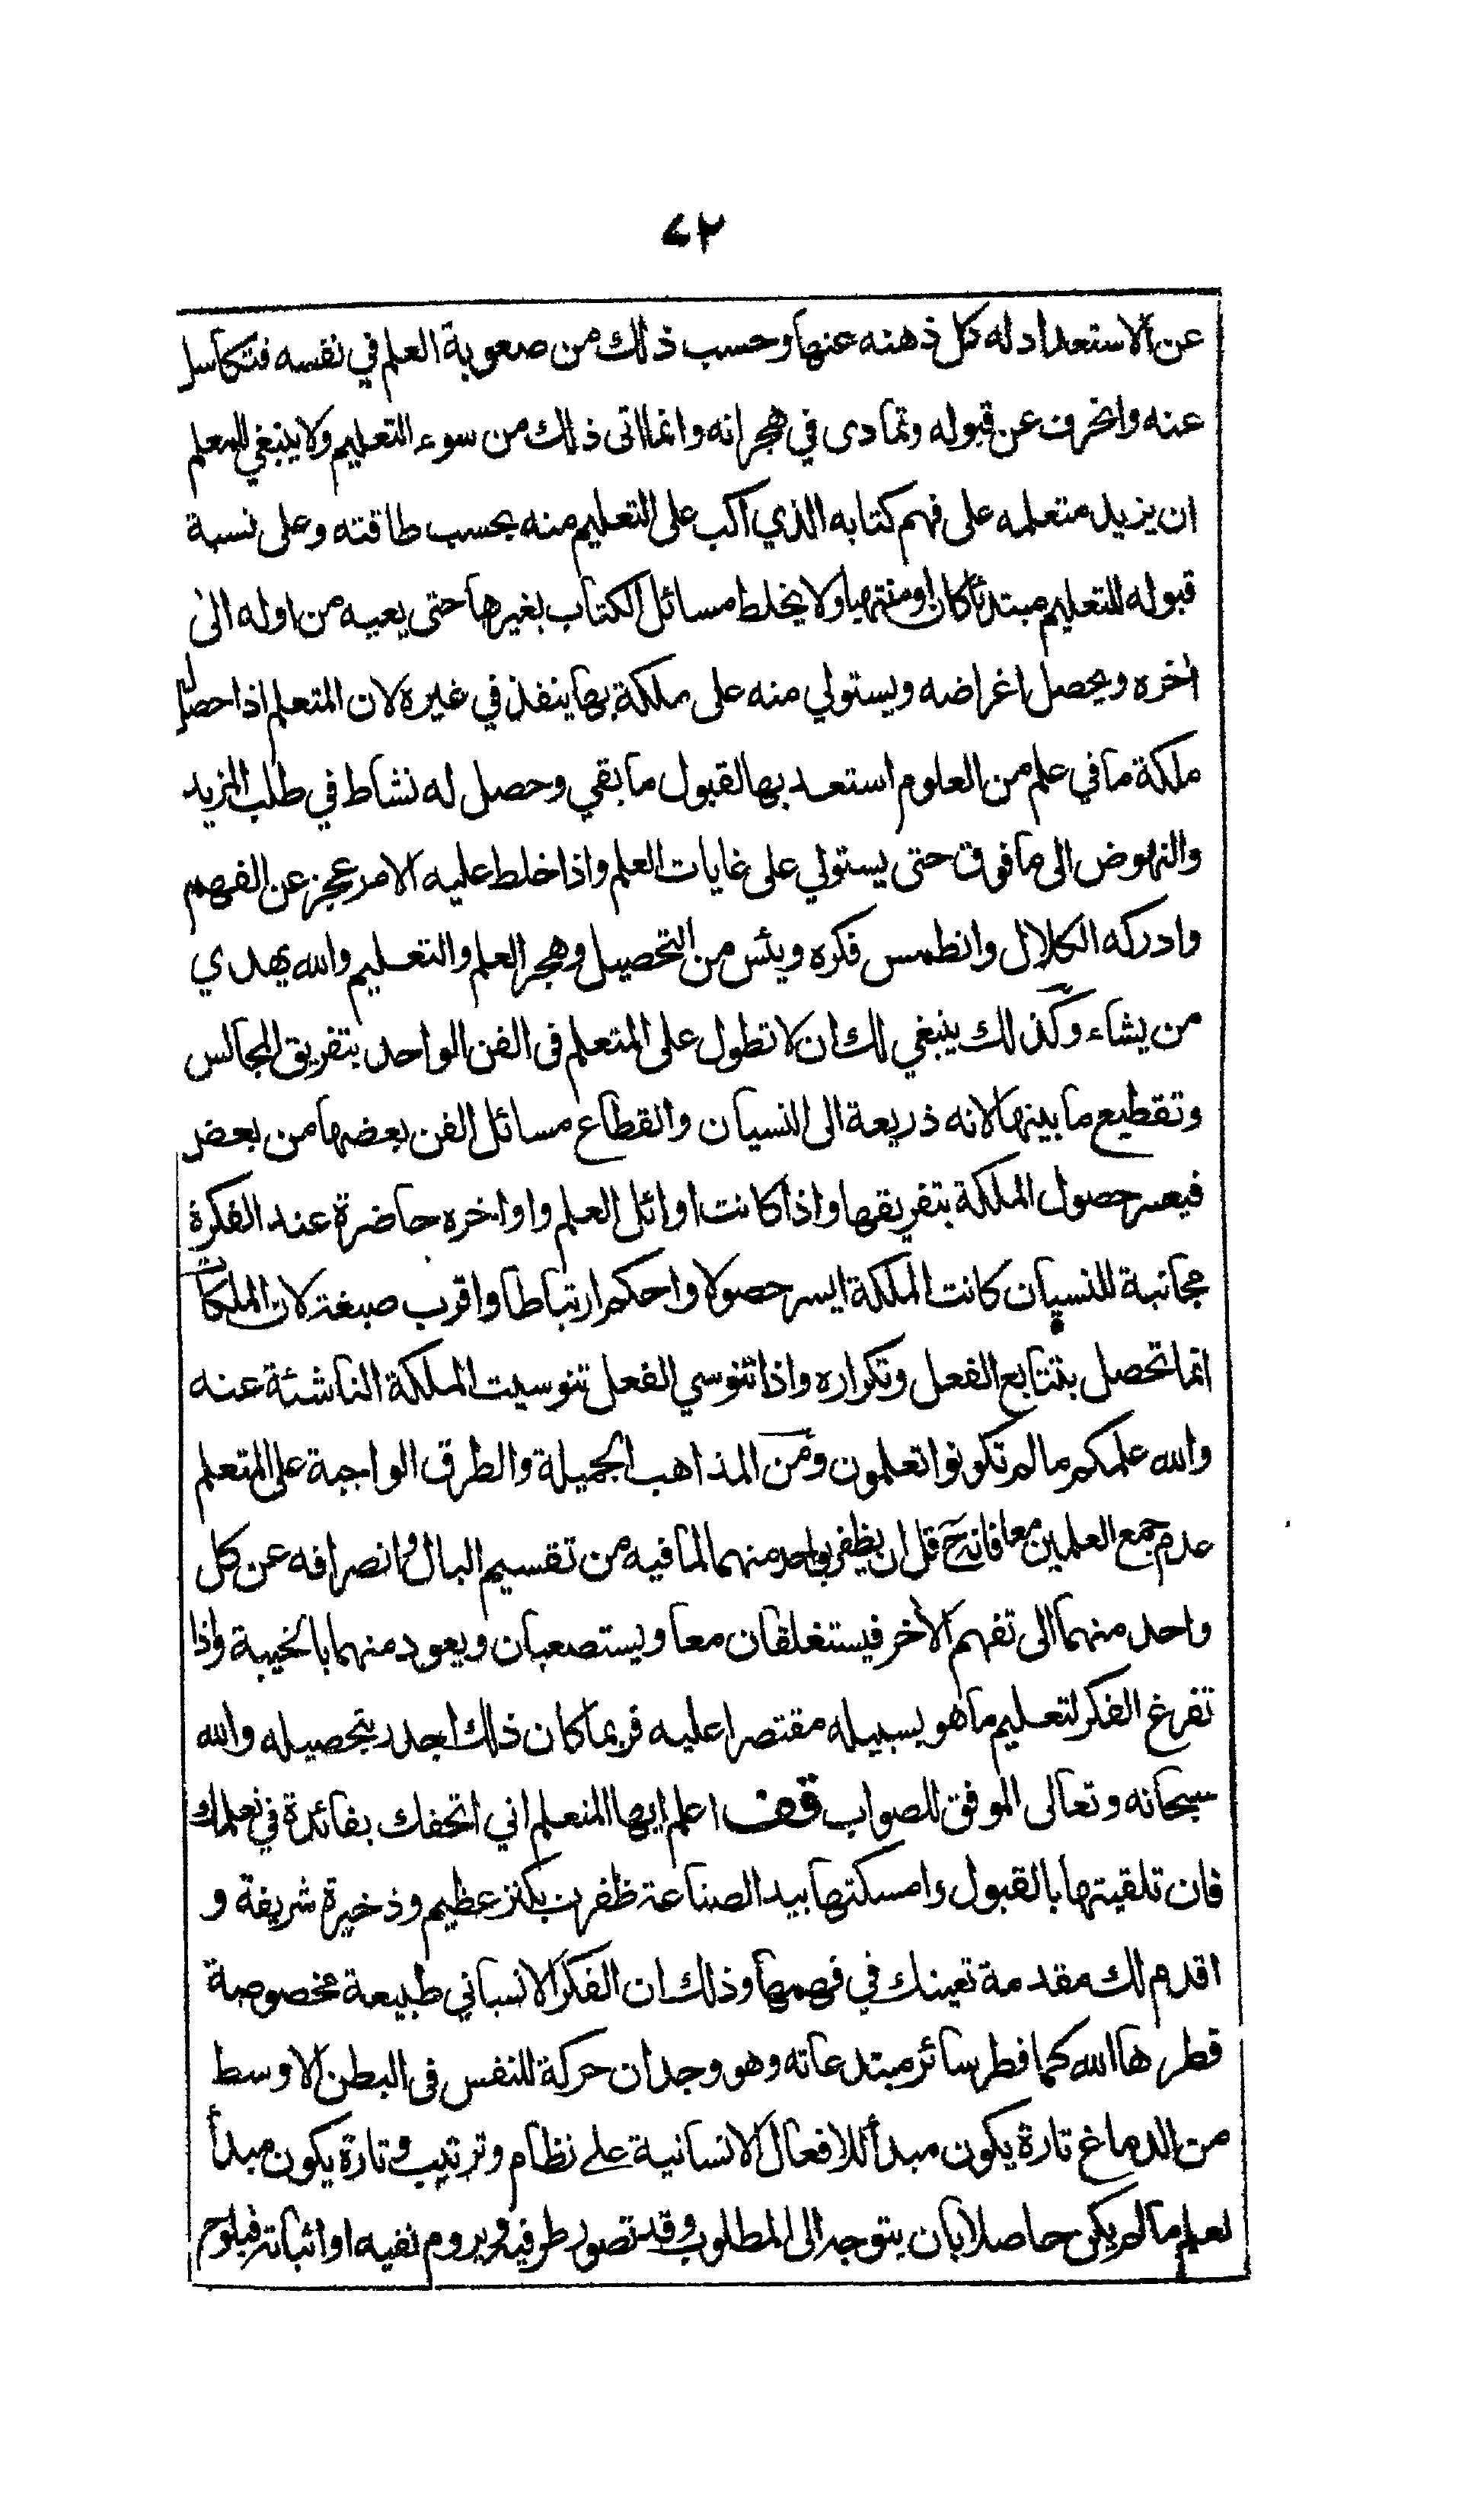 ٧٢
عن الاستعداد له كل ذهنه عنها وحسب ذلك من صعوبة العلم في نفسه فتكاسل
عنه وانحرف عن قبوله وتمادى في هجرانه وانما اتى ذلك من سوء التعليم ولا ينبغي للمعلم
ان يزيد متعلمه على فهم كتابه الذي اكب على التعليم منه بحسب طاقته وعلى نسبة
قبوله للتعليم مبتدئا كان او منتهيا ولا يخلط مسائل الكتاب بغيرها حتى يعيه من اوله الى
اخره ويحصل اغراضه ويستولي منه على ملكة بها ينفذ في غيره لان المتعلم اذا حصل
ملكة ما في علم من العلوم استعد بها لقبول ما بقي وحصل له نشاط في طلب المزيد
والنهوض الى ما فوق حتى يستولي على غايات العلم واذا خلط عليه الامر عجز عن الفهم
وادركه الكلال وانطمس فكره ويئس من التحصيل وهجر العلم والتعليم والله يهدي
من يشاء وكذلك ينبغي لك ان لا تطول على المتعلم فى الفن الواحد بتفريق المجالس
وتقطيع ما بينها لانه ذريعة الى النسيان وانقطاع مسائل الفن بعضها من بعض
فيعسر حصول الملكة بتفريقها واذا كانت اوائل العلم واواخره حاضرة عند الفكرة
مجانبة للنسيان كانت الملكة ايسر حصولا واحكم ارتباطا واقرب صبغة لان الملكات
انما تحصل بتتابع الفعل وتكراره واذا تنوسي الفعل تنوسيت الملكة الناشئة عنه
والله علمكم مالم تكونوا تعلمون ومن المذاهب الجميلة والطرق الواجبة على المتعلم
عدم جمع العلمين معا فانه ح قل ان يظفر بواحد منهما لما فيه من تقسيم البال وانصرافه عن كل
واحد منهما الى تفهم الآخر فيستغلقان معا ويستصعبان ويعود منهما بالخيبة واذا
تفرغ الفكر لتعليم ما هو بسبيله مقتصرا عليه فربما كان ذلك اجدر بتحصيله والله
سبحانه وتعالى الموفق للصواب قف اعلم ايها المتعلم اني اتحفك بفائدة في تعلمك
فان تلقيتها بالقبول وامسكتها بيد الصناعة ظفرت بكنز عظيم وذخيرة شريفة و
اقدم لك مقدمة تعينك في فهمها وذلك ان الفكر الانساني طبيعة مخصوصة
فطرها الله كما فطر سائر مبتدعاته وهو وجدان حركة للنفس فى البطن الاوسط
من الدماغ تارة يكون مبدأ للافعال الانسانية على نظام وترتيب وتارة يكون مبدأ
لعلم مالم يكن حاصلا بان يتوجه الى المطلوب وقد تصور طرفيه ويروم نفيه او اثباته فيلوح